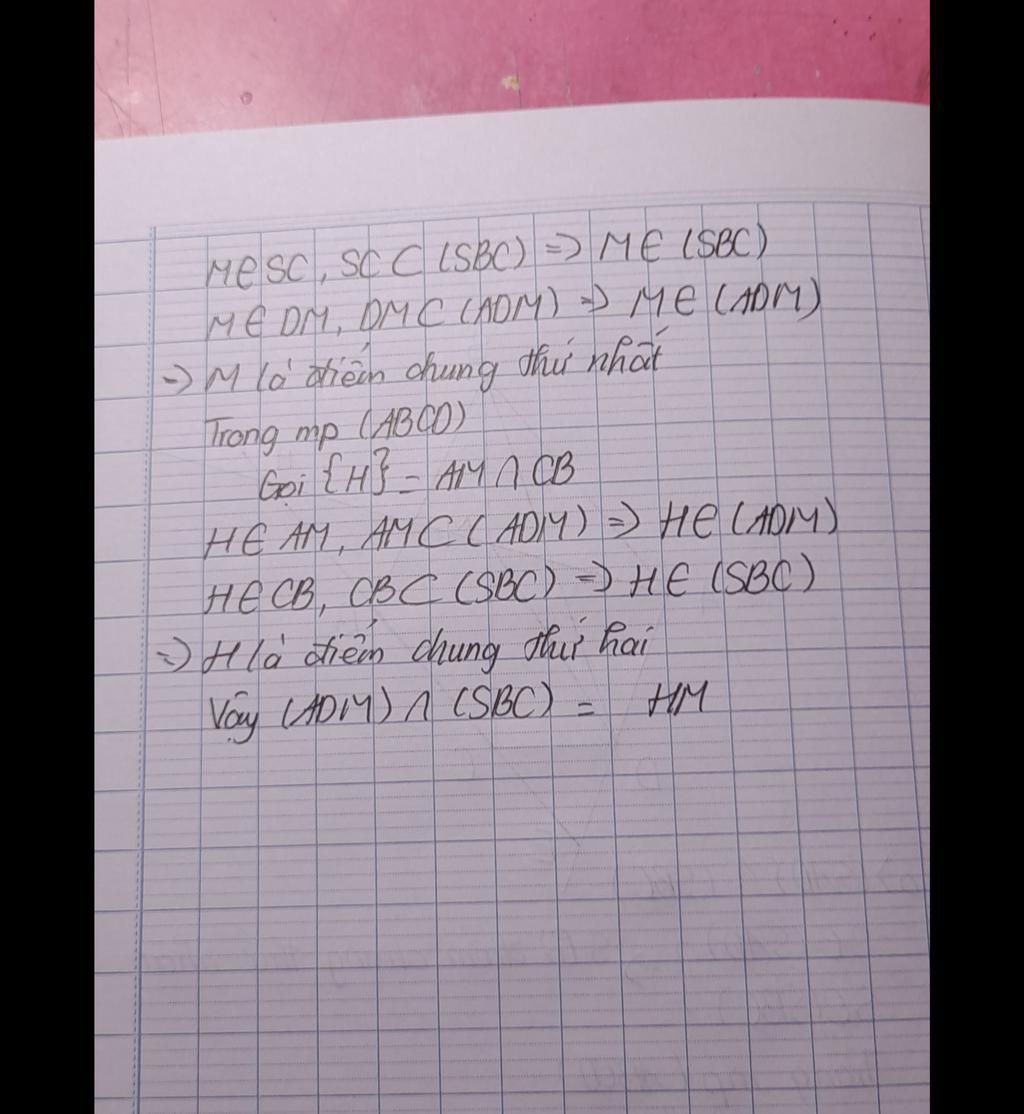 M∈SC, SC⊂(SBC) => M∈(SBC)
M∈DM, DM⊂(ADM) => M∈(ADM)
=> M là điểm chung thứ nhất
Trong mp (ABCD)
Gọi {H} = AM∩CB
H∈AM, AM⊂(ADM) => H∈(ADM)
H∈CB, CB⊂(SBC) => H∈(SBC)
=> H là điểm chung thứ hai
Vậy (ADM)∩(SBC) = HM